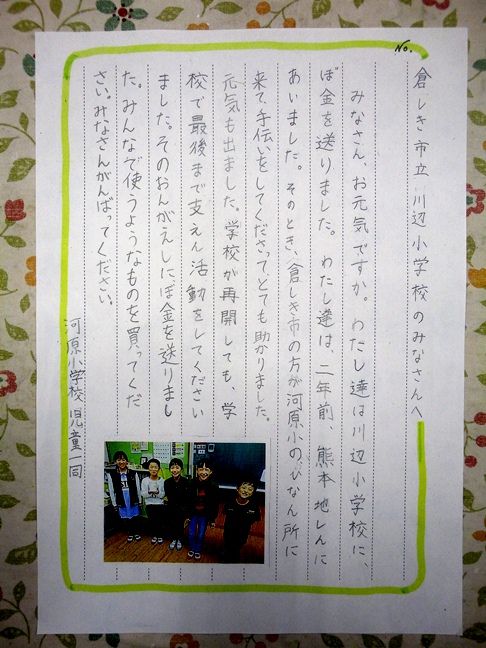 No.
倉しき市立 川辺小学校のみなさんへ
みなさん、お元気ですか。わたし達は川辺小学校に、
ぼ金を送りました。わたし達は、二年前、熊本地しんに
あいました。そのとき、倉しき市の方が河原小のひなん所に
来て、手伝いをしてくださって、とても助かりました。
元気も出ました。学校が再開しても、学
校で最後まで支えん活動をしてください
ました。そのおんがえしにぼ金を送りまし
た。みんなで使うようなものを買ってくだ
さい。みなさんがんばってください。
河原小学校児童一同